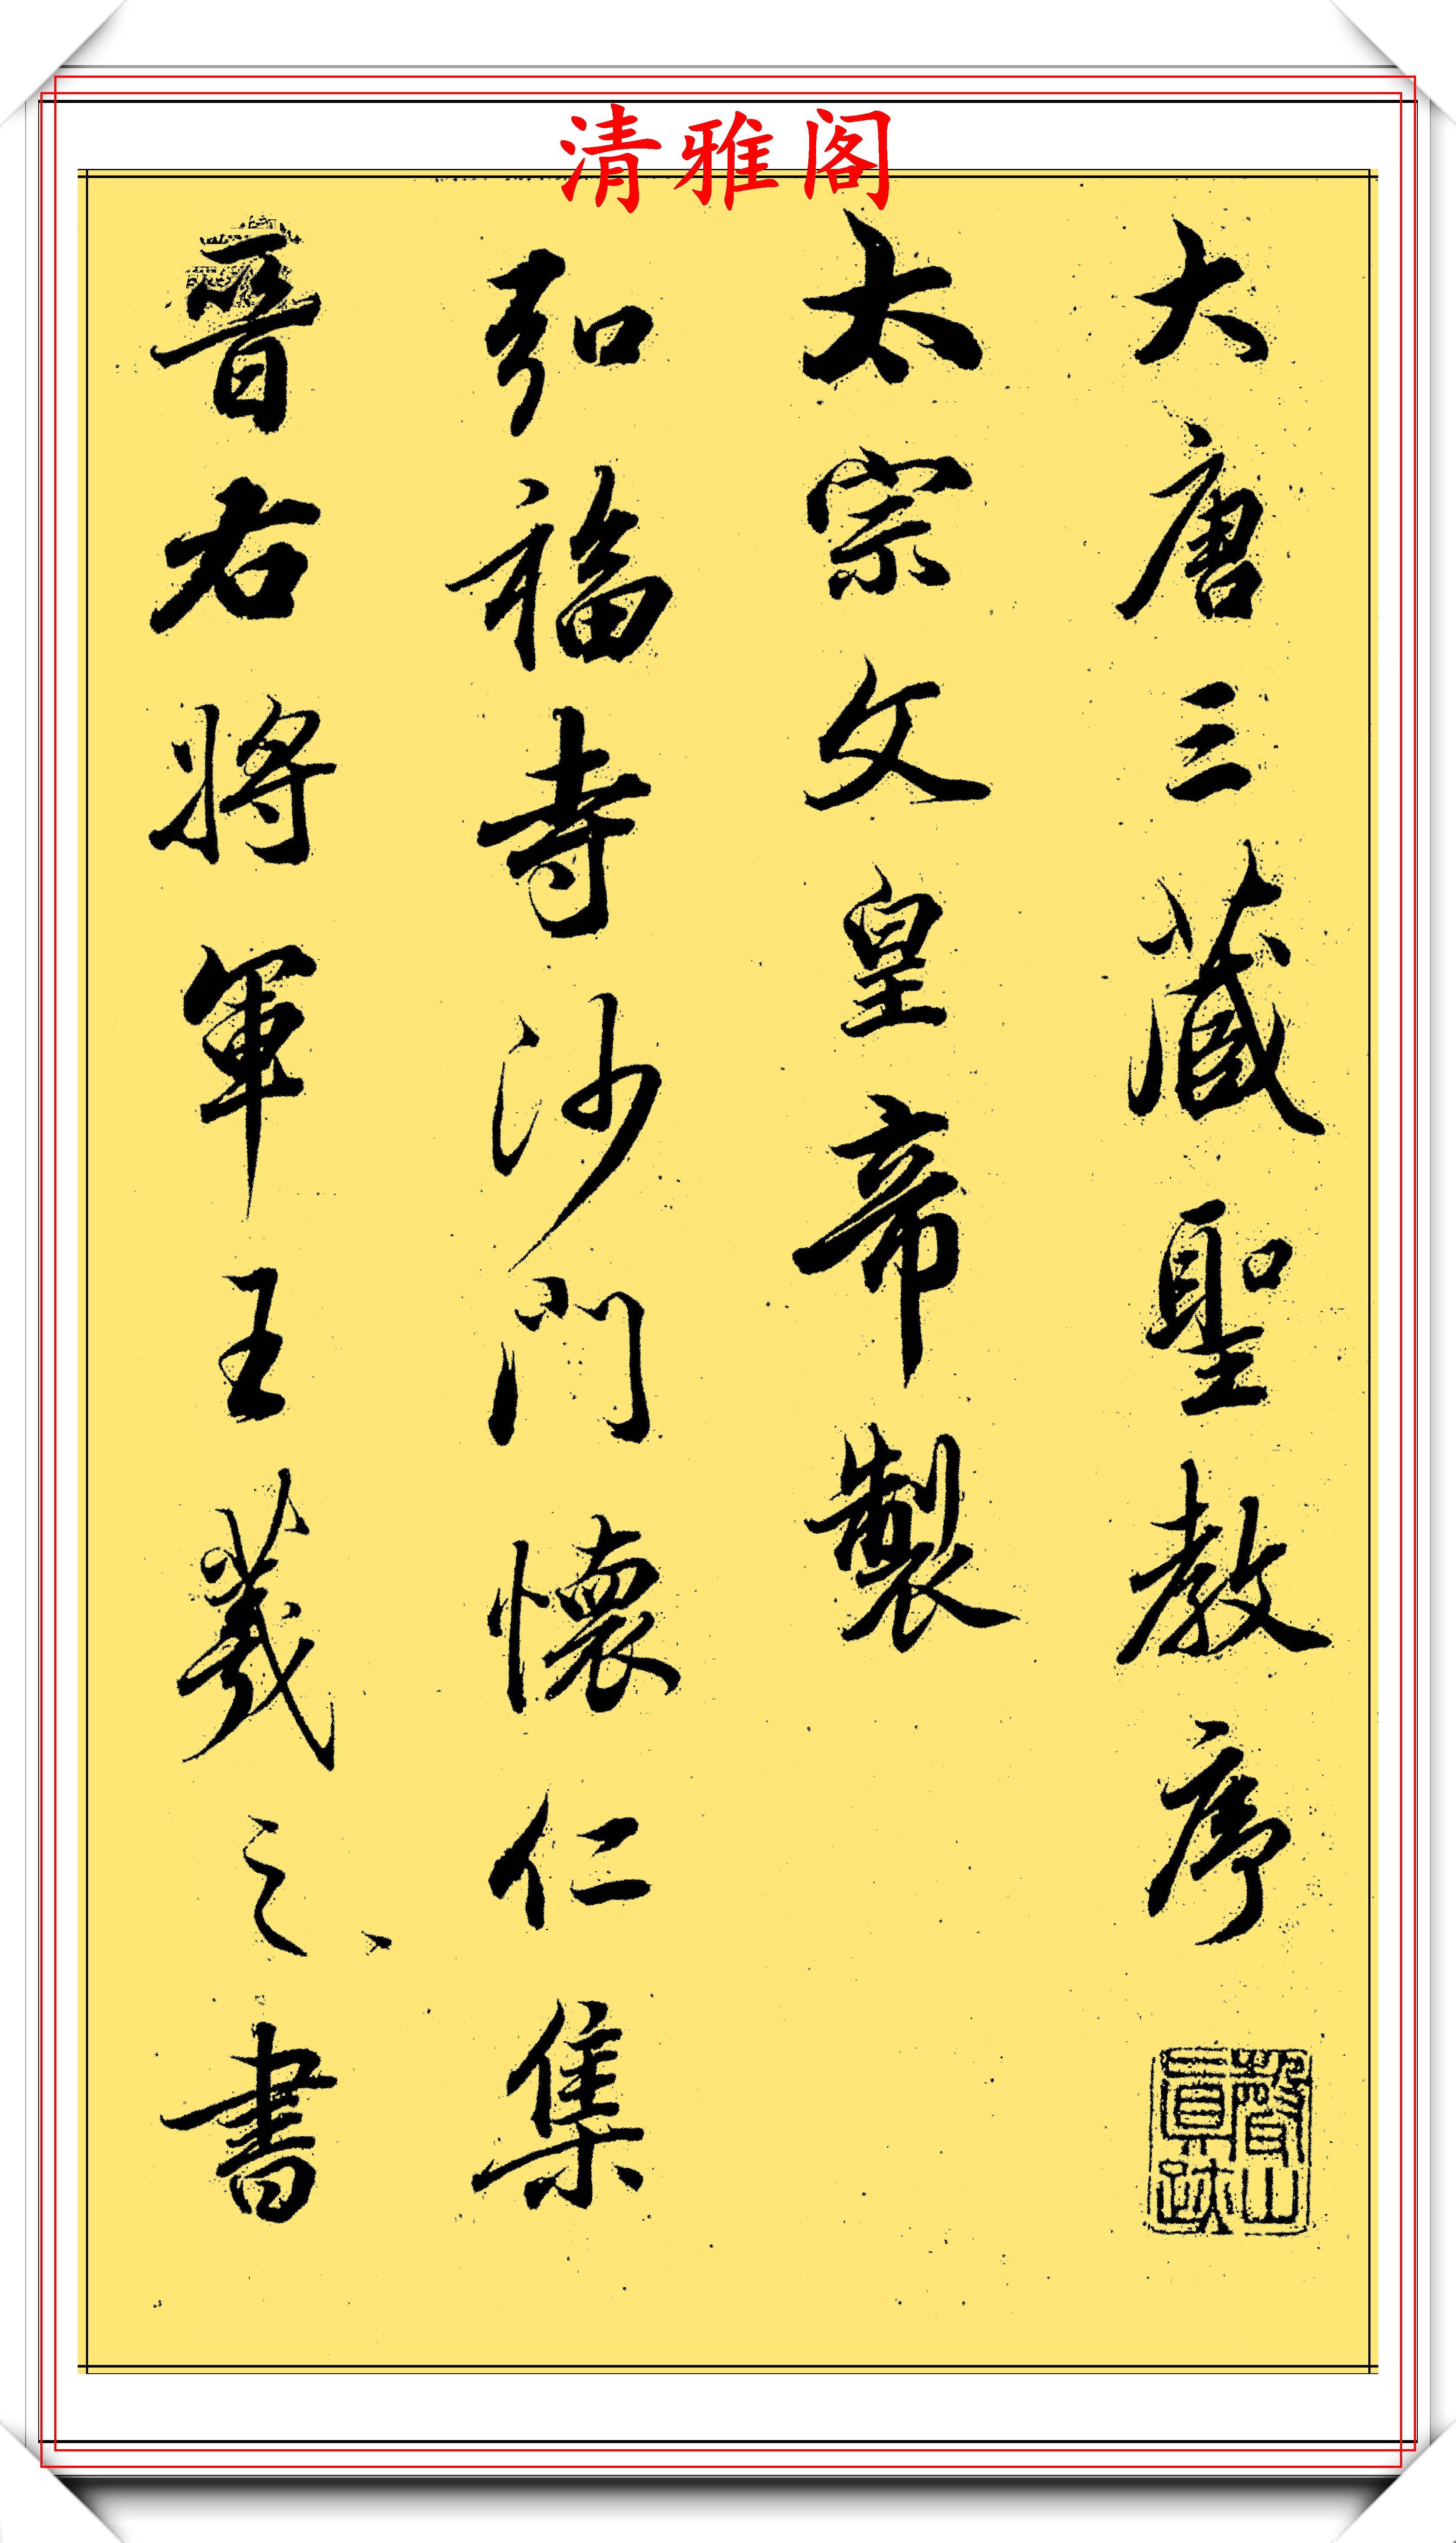 清雅阁
大唐三藏聖教序
太宗文皇帝製
弘福寺沙門懷仁集
晉右將軍王羲之書